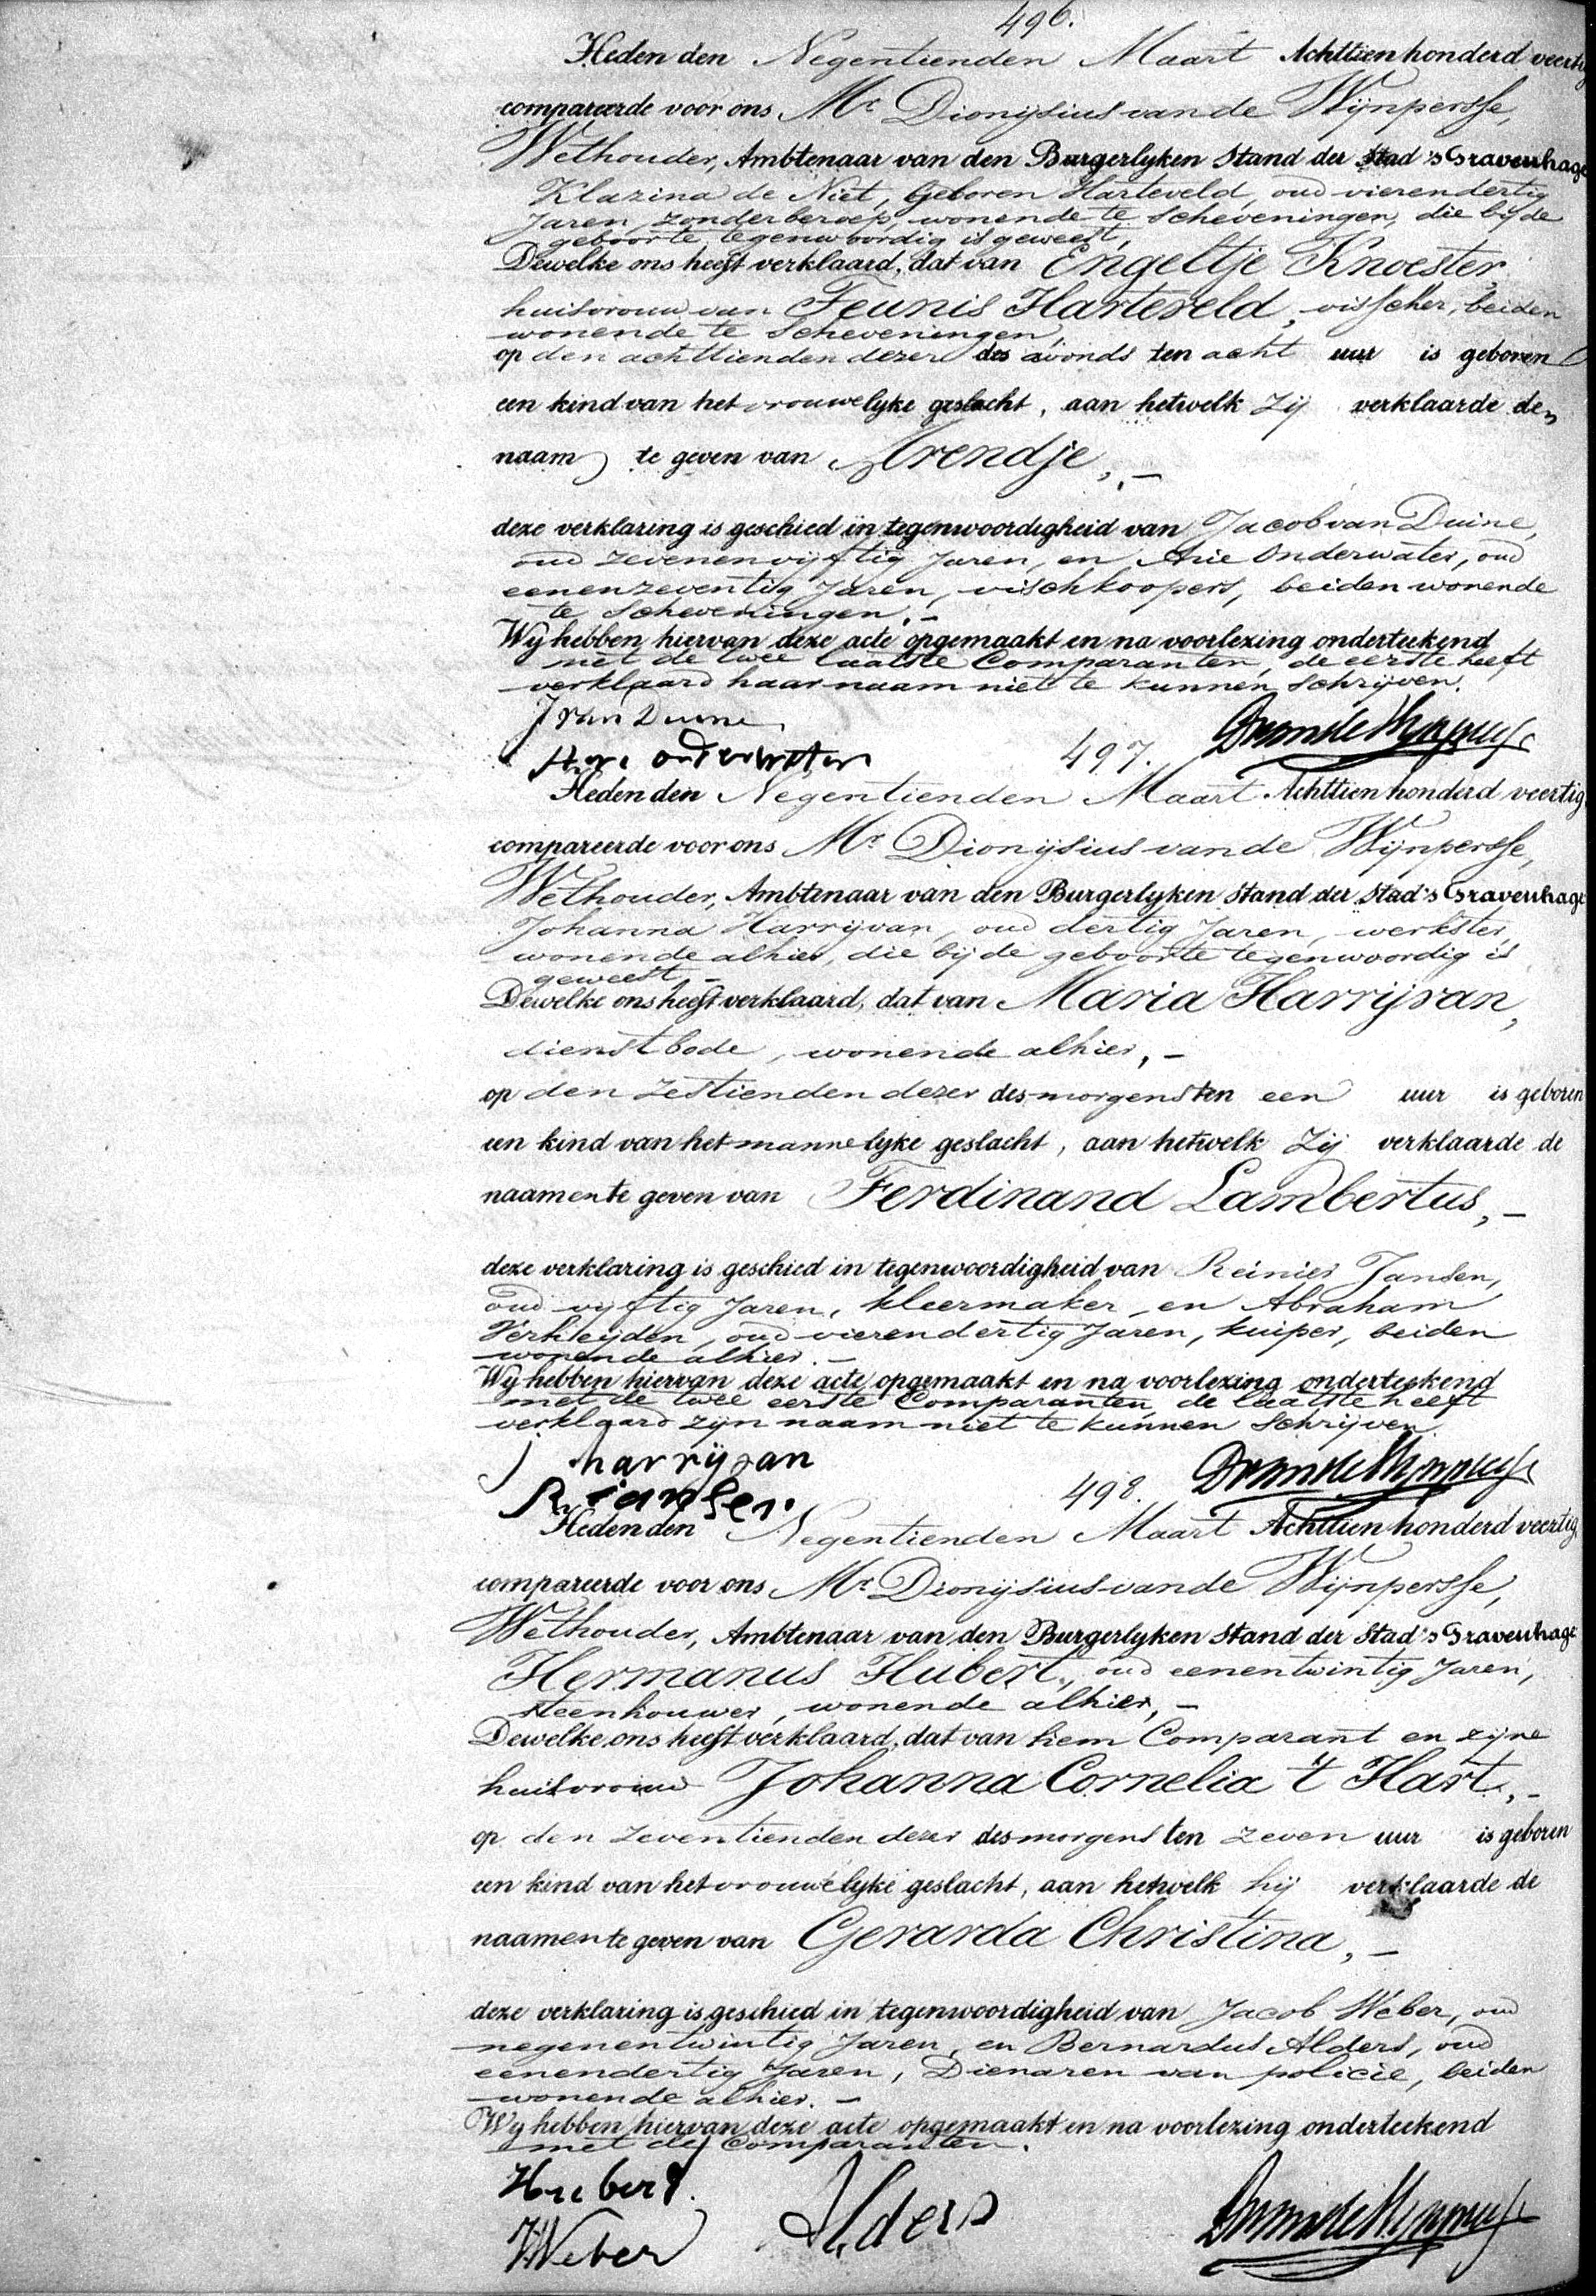 496.
Heden den Negentienden Maart Achttien honderd veertig
compareerde voor ons Mr. Dionysius van de Wijnpersse,
Wethouder, Ambtenaar van den Burgerlyken Stand der Stad 's Gravenhage
Klazina de Niet, geboren Harteveld, oud vierendertig
Jaren, zonder beroep, wonende te Scheveningen, die bij de
geboorte tegenwoordig is geweest,
Dewelke ons heeft verklaard, dat van Engeltje Knoester,
huisvrouw van Teunis Harteveld, visscher, beiden
wonende te Scheveningen,
op den achttienden dezer des avonds ten acht uur is geboren
een kind van het vrouwelyke geslacht, aan hetwelk Zij verklaarde den
naam te geven van Arendje, –
deze verklaring is geschied in tegenwoordigheid van Jacob van Duine,
oud zevenenvijftig Jaren, en Arie Onderwater, oud
eenenzeventig Jaren, vischkoopers, beiden wonende
te Scheveningen. –
Wy hebben hiervan deze acte opgemaakt en na voorlezing onderteekend
met de twee laatste Comparanten, de eerste heeft
verklaard haar naam niet te kunnen Schrijven.
J van Duine
Arie onderwater
497.
Heden den Negentienden Maart Achttien honderd veertig
compareerde voor ons Mr. Dionijsius van de Wijnpersse,
Wethouder, Ambtenaar van den Burgerlyken Stand der Stad 's Gravenhage
Johanna Harrijvan, oud dertig Jaren, werkster,
wonende alhier, die bij de geboorte tegenwoordig is
geweest, –
Dewelke ons heeft verklaard, dat van Maria Harrijvan,
dienstbode, wonende alhier, –
op den zestienden dezer des morgens ten een uur is geboren
een kind van het mannelyke geslacht, aan hetwelk Zij verklaarde de
naamen te geven van Ferdinand Lambertus, –
deze verklaring is geschied in tegenwoordigheid van Reinier Jansen,
oud vijftig Jaren, kleermaker en Abraham
Verheyden, oud vierendertig Jaren, kuiper, beiden
wonende alhier. –
Wy hebben hiervan deze acte opgemaakt en na voorlezing onderteekend
met de twee eerste Comparanten, de laatste heeft
verklaard zijn naam niet te kunnen Schrijven
J harrijvan
R jansen.
498.
Heden den Negentienden Maart Achttien honderd veertig
compareerde voor ons Mr. Dionijsius van de Wijnpersse,
Wethouder, Ambtenaar van den Burgerlyken Stand der Stad 's Gravenhage
Hermanus Hubert, oud eenentwintig Jaren,
steenhouwer, wonende alhier, –
Dewelke ons heeft verklaard, dat van hem Comparant en zijne
huisvrouw Johanna Cornelia 't Hart, –
op den zeventienden dezer des morgens ten zeven uur is geboren
een kind van het vrouwelyke geslacht, aan hetwelk hij verklaarde de
naamen te geven van Gerarda Christina, –
deze verklaring is geschied in tegenwoordigheid van Jacob Weber, oud
negenentwintig Jaren, en Bernardus Alders, oud
eenendertig Jaren, Dienaren van policie, beiden
wonende alhier. –
Wy hebben hiervan deze acte opgemaakt en na voorlezing onderteekend
met de Comparanten.
Hubert.
Alders
J Weber